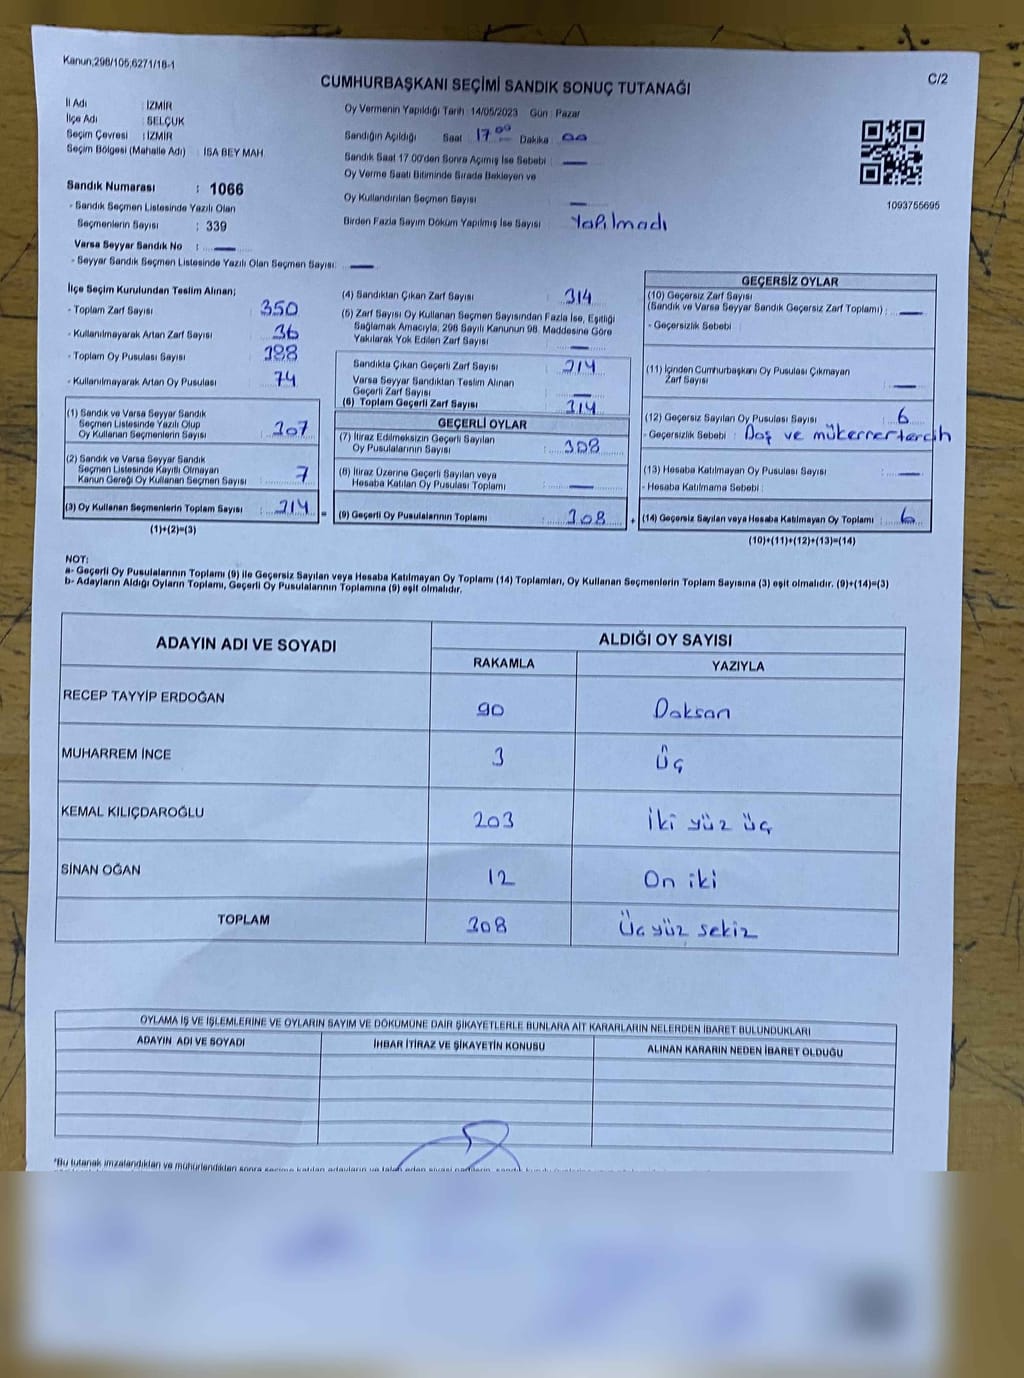 Kanun;298/105;6271/18-1
C/2
CUMHURBAŞKANI SEÇİMİ SANDIK SONUÇ TUTANAĞI
İl Adı : İZMİR
İlçe Adı : SELÇUK
Seçim Çevresi : İZMİR
Seçim Bölgesi (Mahalle Adı) : İSA BEY MAH.
Oy Vermenin Yapıldığı Tarih 14/05/2023 Gün : Pazar
Sandığın Açıldığı Saat 17⁰⁰ Dakika 00
Sandık Saat 17.00'den Sonra Açımış İse Sebebi : —
Oy Verme Saati Bitiminde Sırada Bekleyen ve
Oy Kullandırılan Seçmen Sayısı —
Birden Fazla Sayım Döküm Yapılmış İse Sayısı Yapılmadı
1093755695
Sandık Numarası : 1066
- Sandık Seçmen Listesinde Yazılı Olan
Seçmenlerin Sayısı : 339
Varsa Seyyar Sandık No : —
- Seyyar Sandık Seçmen Listesinde Yazılı Olan Seçmen Sayısı: —
İlçe Seçim Kurulundan Teslim Alınan;
- Toplam Zarf Sayısı 350
- Kullanılmayarak Artan Zarf Sayısı 36
- Toplam Oy Pusulası Sayısı 388
- Kullanılmayarak Artan Oy Pusulası 74
(1) Sandık ve Varsa Seyyar Sandık
Seçmen Listesinde Yazılı Olup
Oy Kullanan Seçmenlerin Sayısı : 307
(2) Sandık ve Varsa Seyyar Sandık
Seçmen Listesinde Kayıtlı Olmayan
Kanun Gereği Oy Kullanan Seçmen Sayısı : 7
(3) Oy Kullanan Seçmenlerin Toplam Sayısı : 314 =
(1)+(2)=(3)
(4) Sandıktan Çıkan Zarf Sayısı : 314
(5) Zarf Sayısı Oy Kullanan Seçmen Sayısından Fazla İse, Eşitliği
Sağlamak Amacıyla, 298 Sayılı Kanunun 98. Maddesine Göre
Yakılarak Yok Edilen Zarf Sayısı —
Sandıkta Çıkan Geçerli Zarf Sayısı : 314
Varsa Seyyar Sandıktan Teslim Alınan
Geçerli Zarf Sayısı —
(6) Toplam Geçerli Zarf Sayısı 314
GEÇERLİ OYLAR
(7) İtiraz Edilmeksizin Geçerli Sayılan
Oy Pusulalarının Sayısı : 308
(8) İtiraz Üzerine Geçerli Sayılan veya
Hesaba Katılan Oy Pusulası Toplamı : —
(9) Geçerli Oy Pusulalarının Toplamı : 308 +
GEÇERSİZ OYLAR
(10) Geçersiz Zarf Sayısı
(Sandık ve Varsa Seyyar Sandık Geçersiz Zarf Toplamı) : —
- Geçersizlik Sebebi :
(11) İçinden Cumhurbaşkanı Oy Pusulası Çıkmayan
Zarf Sayısı : —
(12) Geçersiz Sayılan Oy Pusulası Sayısı : 6
- Geçersizlik Sebebi : Boş ve mükerrer tercih
(13) Hesaba Katılmayan Oy Pusulası Sayısı : —
- Hesaba Katılmama Sebebi :
(14) Geçersiz Sayılan veya Hesaba Katılmayan Oy Toplamı : 6
(10)+(11)+(12)+(13)=(14)
NOT:
a- Geçerli Oy Pusulalarının Toplamı (9) ile Geçersiz Sayılan veya Hesaba Katılmayan Oy Toplamı (14) Toplamları, Oy Kullanan Seçmenlerin Toplam Sayısına (3) eşit olmalıdır. (9)+(14)=(3)
b- Adayların Aldığı Oyların Toplamı, Geçerli Oy Pusulalarının Toplamına (9) eşit olmalıdır.
ADAYIN ADI VE SOYADI
ALDIĞI OY SAYISI
RAKAMLA YAZIYLA
RECEP TAYYİP ERDOĞAN 90 Doksan
MUHARREM İNCE 3 Üç
KEMAL KILIÇDAROĞLU 203 İki yüz üç
SİNAN OĞAN 12 On iki
TOPLAM 308 Üç yüz sekiz
OYLAMA İŞ VE İŞLEMLERİNE VE OYLARIN SAYIM VE DÖKÜMÜNE DAİR ŞİKAYETLERLE BUNLARA AİT KARARLARIN NELERDEN İBARET BULUNDUKLARI
ADAYIN ADI VE SOYADI İHBAR İTİRAZ VE ŞİKAYETİN KONUSU ALINAN KARARIN NEDEN İBARET OLDUĞU
*Bu tutanak imzalandıktan ve mühürlendikten sonra